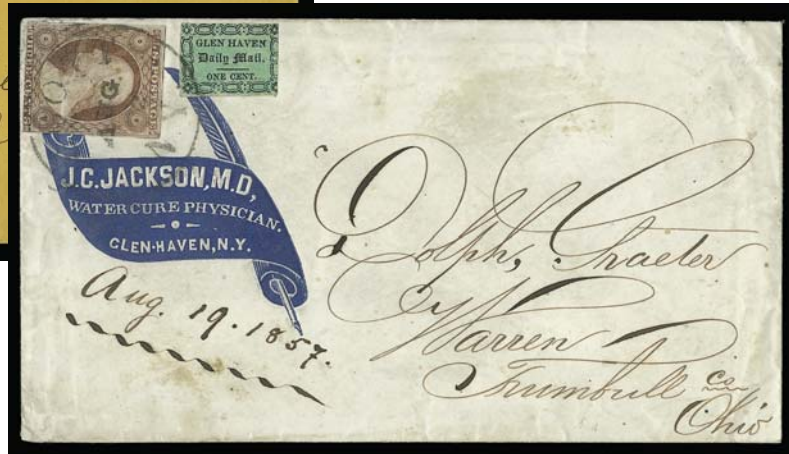 GLEN HAVEN
Daily Mail.
ONE CENT.
J.C. JACKSON, M.D,
WATER CURE PHYSICIAN.
GLEN-HAVEN, N.Y.
Aug. 19. 1857.
Dolph, Graeter
Warren
Trumbull co
Ohio